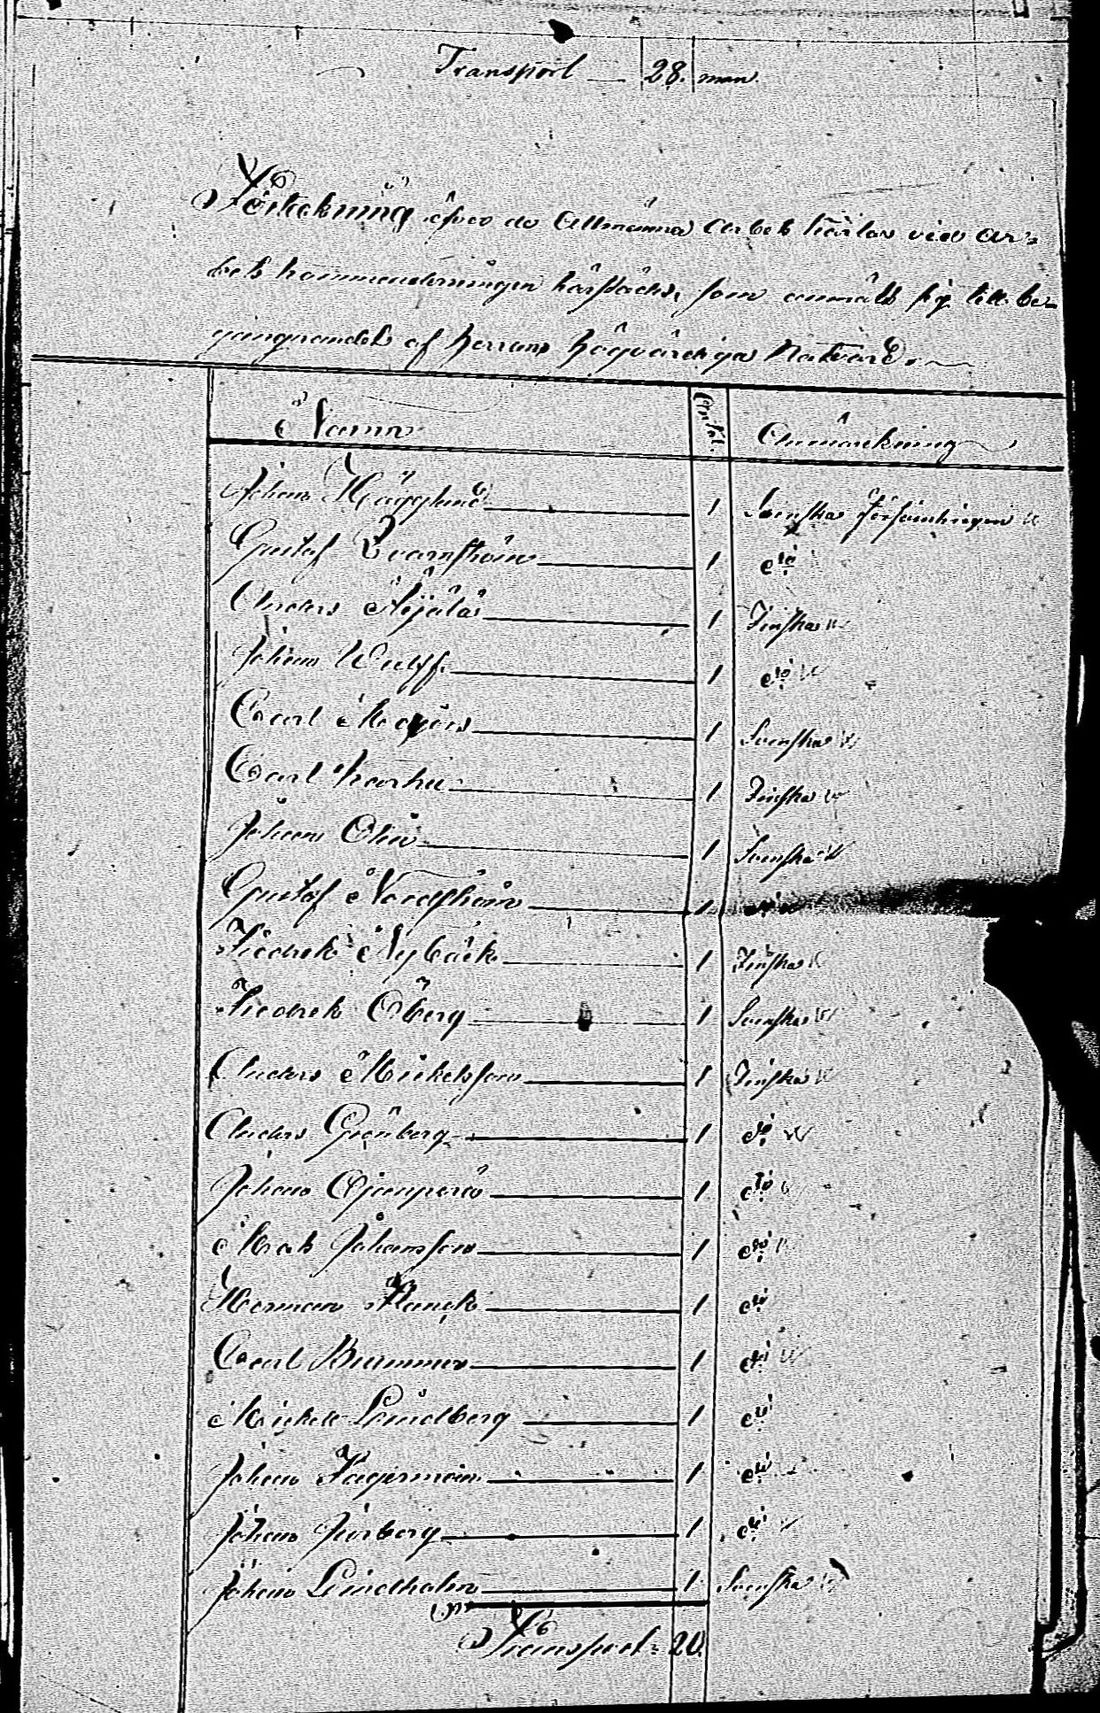 Transport 28. man.
Förtekning öfver de Allmänna Arbets kârlar vid Ar=
bets kommenderingen härstädes, som anmält sig till be-
gångandet af Herrans Högvärdiga Nattvard.
Namn Antal. Anmärckning
Johan Hägglund 1 Svenska församlingen
Gustaf Qvarnström 1 do
Anders 1 Finska
Johan Wulff 1 do
Carl 1 Svenska
Carl Karhu 1 Finska
Johan Olin 1 Svenska
Gustaf Nordström 1 do
Fredrik Nybäck 1 Finska
Fredrik Öberg 1 Svenska
Anders Mickelsson 1 Finska
Anders Grönberg 1 do
Johan Ojanperä 1 do
Mats Johansson 1 do
Herman Planck 1 do
Carl Brummer 1 do
Mickel Lindberg 1 do
Johan Fagerman 1 do
Johan 1 do
Johan Lindholm 1 Svenska
Transport = 20.